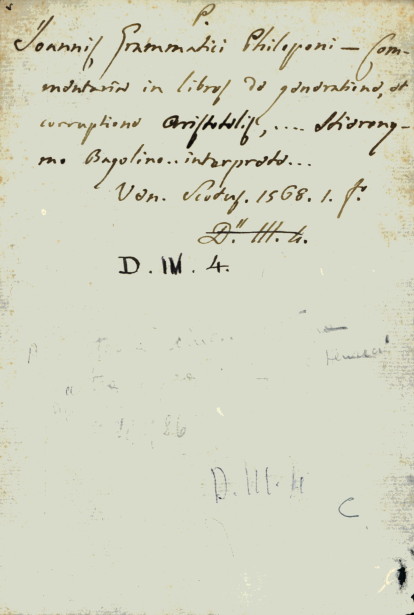 P.
Joannis Grammatici Philoponi — Com-
mentaria in libros de generatione, et
corruptione Aristotelis, .... Hierony-
mo Bagolino.. interprete...
Ven. Scotus. 1568. 1. f.
D. III. 4.
D. III. 4.
D. III. 4
C